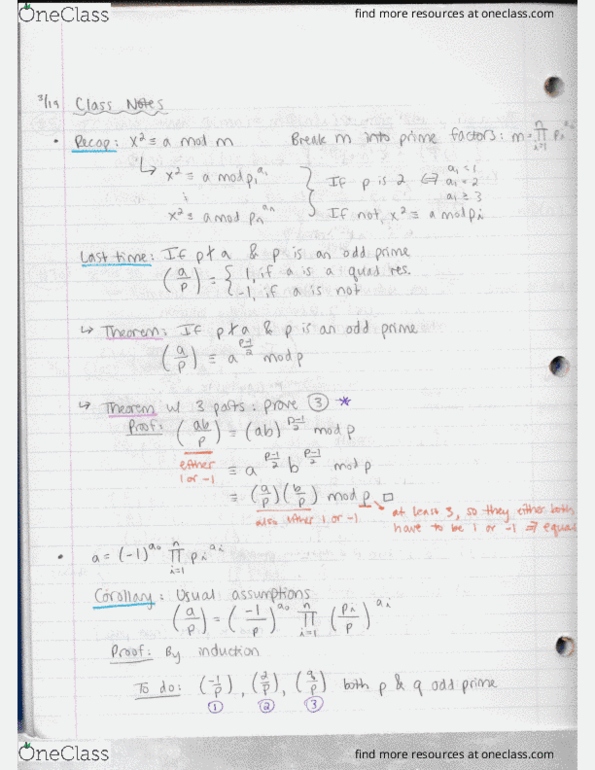 OneClass
find more resources at oneclass.com
3/19 Class Notes
• Recap: x² ≡ a mod m Break m into prime factors: m = ∏ᵢ₌₁ⁿ pᵢ^aᵢ
↳ x² ≡ a mod p₁^a₁ } If p is 2 ⇔ a₁ = 1
a₁ = 2
a₁ ≥ 3
⋮
x² ≡ a mod pₙ^aₙ If not, x² ≡ a mod pᵢ
Last time: If p∤a & p is an odd prime
(a/p) = { 1, if a is a quad res.
-1, if a is not
↳ Theorem: If p∤a & p is an odd prime
(a/p) ≡ a^(p-1)/2 mod p
↳ Theorem w/ 3 parts: prove ③ *
Proof: (ab/p) = (ab)^(p-1)/2 mod p
either
1 or -1
≡ a^(p-1)/2 b^(p-1)/2 mod p
≡ (a/p)(b/p) mod p □
also either 1 or -1
at least 3, so they either both
have to be 1 or -1 ⇒ equal
• a = (-1)^a₀ ∏ᵢ₌₁ⁿ pᵢ^aᵢ
Corollary: Usual assumptions
(a/p) = (-1/p)^a₀ ∏ᵢ₌₁ⁿ (pᵢ/p)^aᵢ
Proof: By induction
To do: (-1/p), (2/p), (q/p) both p & q odd prime
① ② ③
OneClass
find more resources at oneclass.com